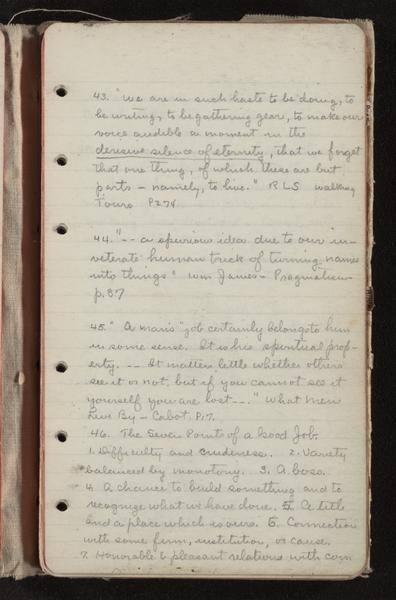 43. "We are in such haste to be doing, to
be writing, to be gathering gear, to make our
voice audible a moment in the
derisive silence of eternity, that we forget
that one thing, of which these are but
parts — namely, to live." R L S Walking
Tours P274
44. "-- a spurious idea due to our in-
veterate human trick of turning names
into things" Wm James - Pragmatism
p. 87
45. "A man's "job" certainly belongs to him
in some sense. It is his spiritual prop-
erty. -- It matters little whether others
see it or not, but if you cannot see it
yourself you are lost --." What Men
Live By - Cabot. P.17.
46. The Seven Points of a Good Job.
1. Difficulty and crudeness. 2. Variety
balanced by monotony. 3. A boss.
4. A chance to build something and to
recognize what we have done. 5. A title
and a place which is ours. 6. Connection
with some firm, institution, or cause.
7. Honorable & pleasant relations with com